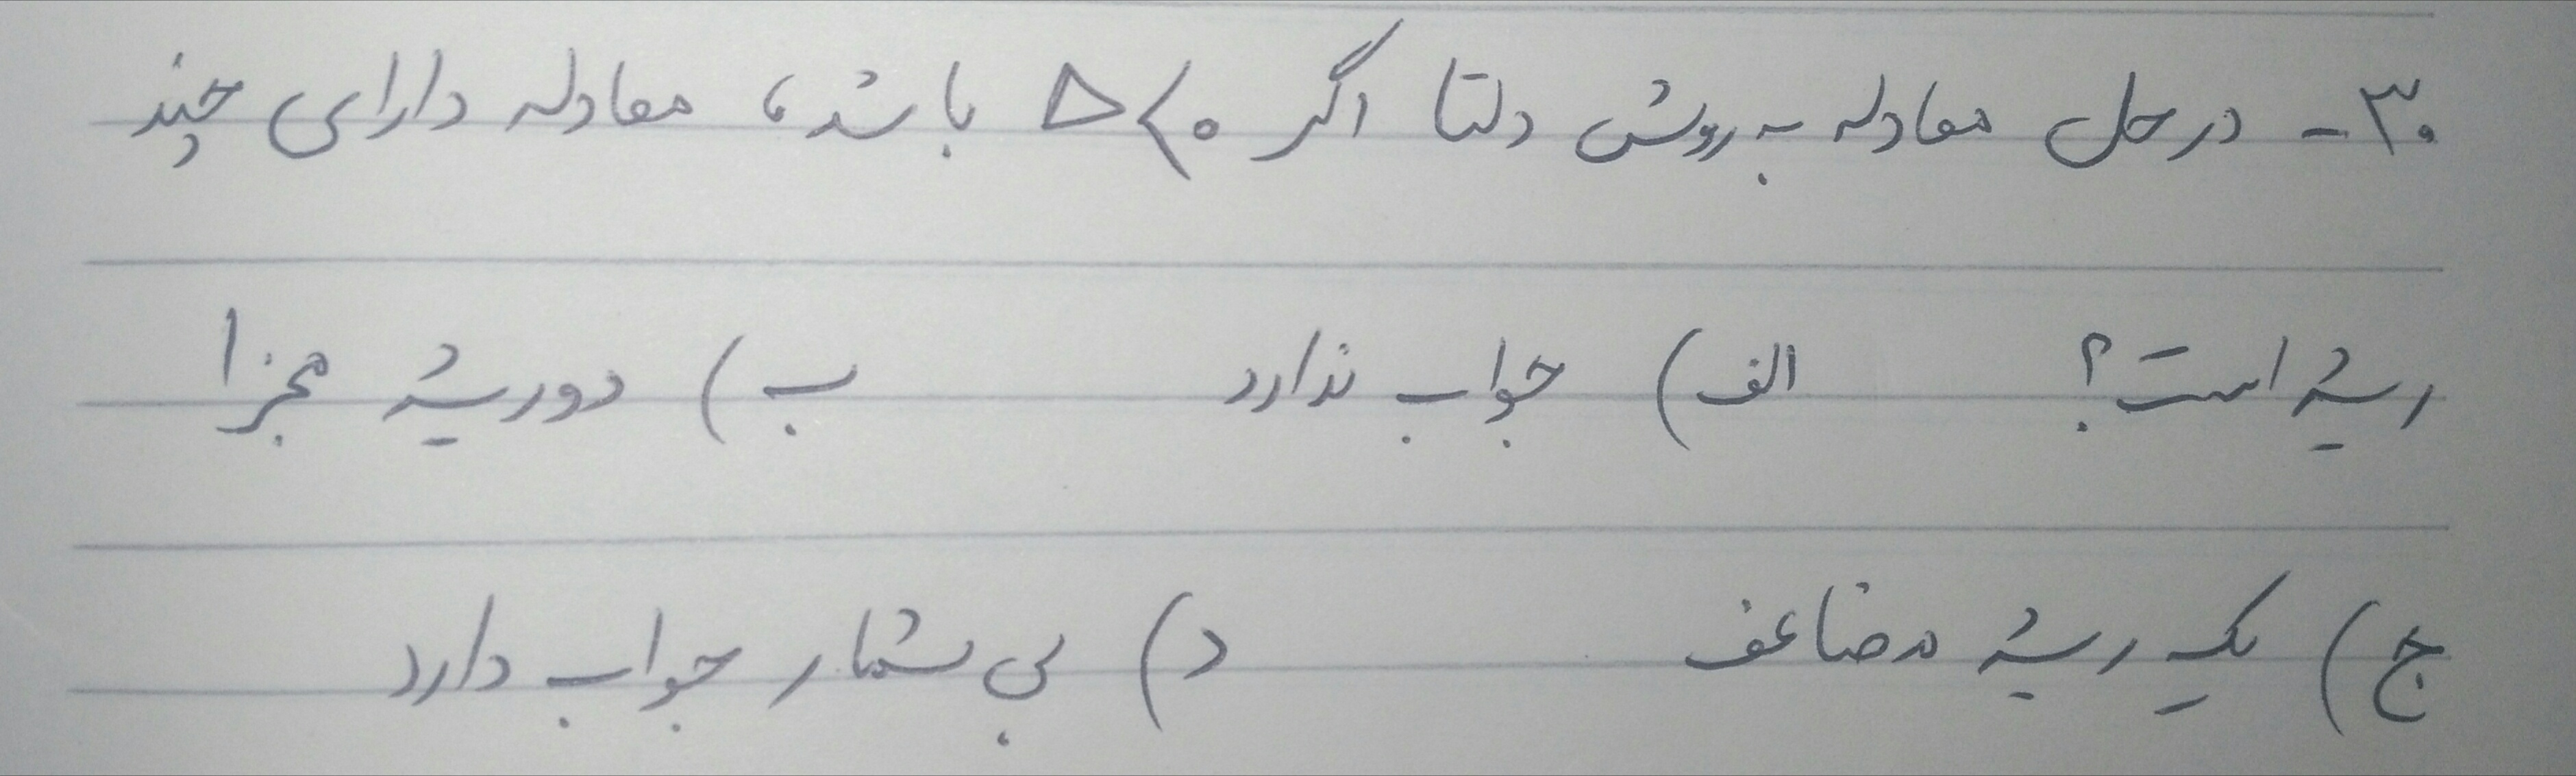 ۳۰- در حل معادله به روش دلتا اگر Δ<۰ باشد، معادله دارای چند
ریشه است؟ الف) جواب ندارد ب) دو ریشه مجزا
ج) یک ریشه مضاعف د) بی شمار جواب دارد